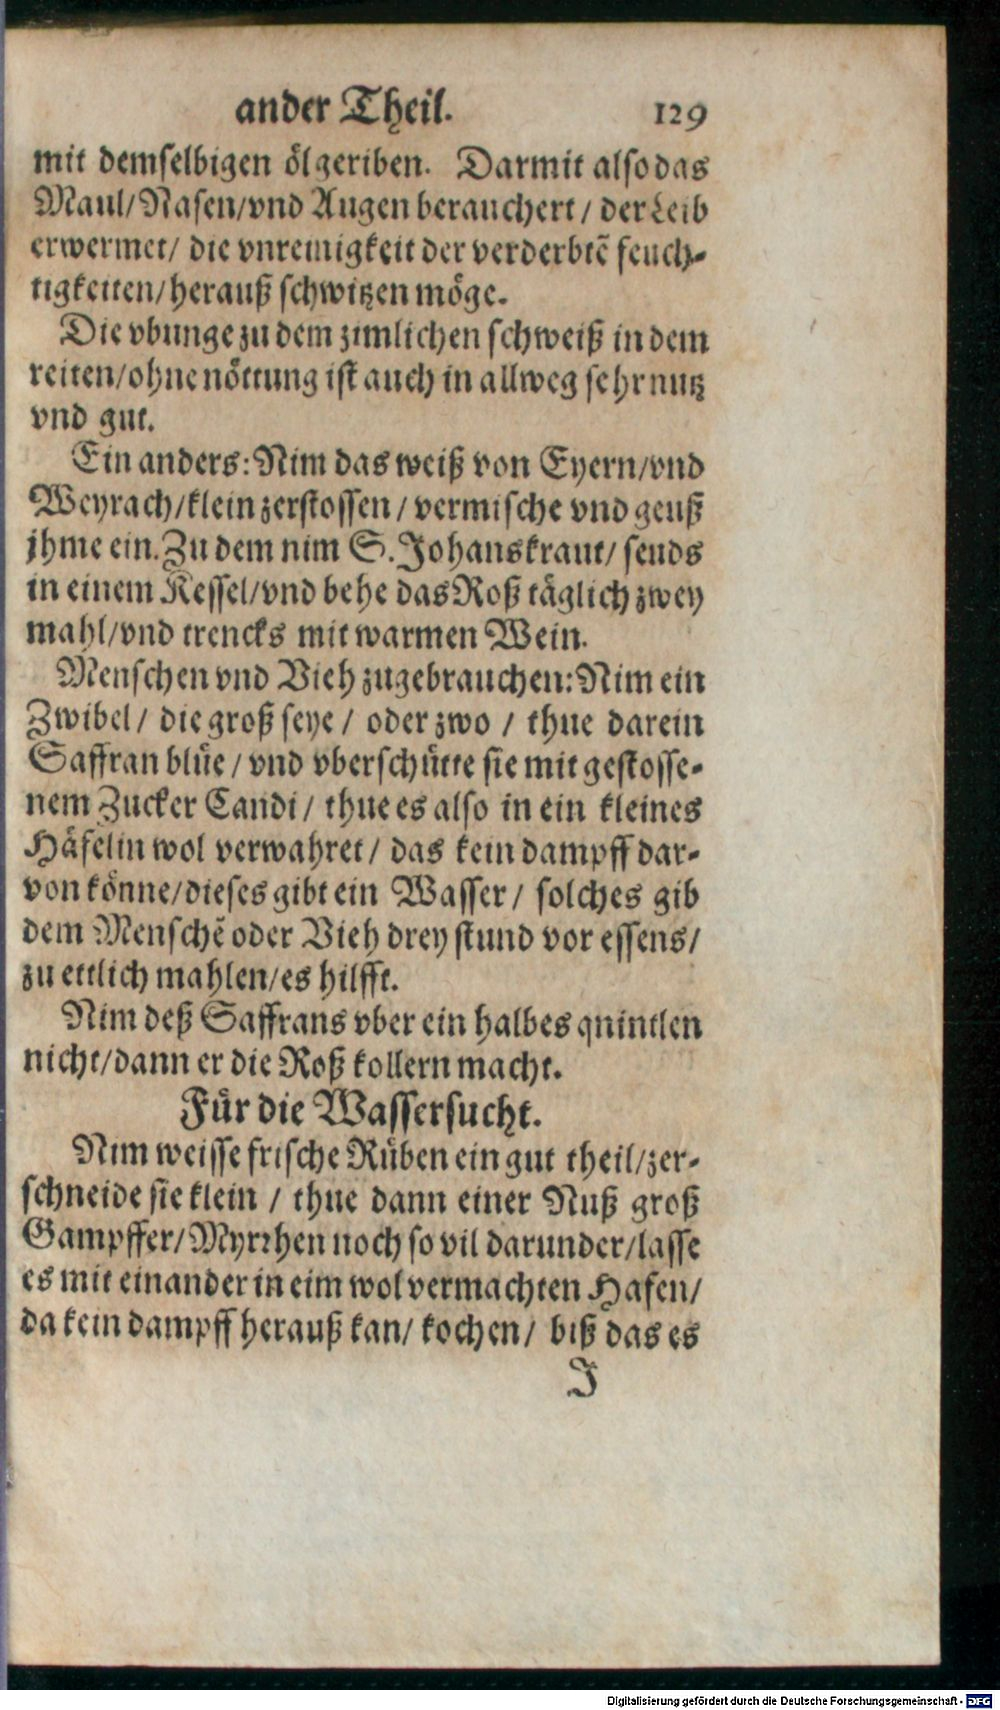 ander Theil. 129
mit demselbigen ölgeriben. Darmit also das
Maul/Nasen/vnd Augen berauchert / der Leib
erwermet/ die vnreinigkeit der verderbtẽ feuch-
tigkeiten/herauß schwitzen möge.
Die vbunge zu dem zimlichen schweiß in dem
reiten/ohne nöttung ist auch in allweg sehr nutz
vnd gut.
Ein anders: Nim das weiß von Eyern/vnd
Weyrach/klein zerstossen / vermische vnd geuß
jhme ein. Zu dem nim S. Johanskraut/ seuds
in einem Kessel/vnd behe das Roß täglich zwey
mahl/vnd trencks mit warmen Wein.
Menschen vnd Vieh zugebrauchen: Nim ein
Zwibel / die groß seye / oder zwo / thue darein
Saffran blüe / vnd vberschütte sie mit gestosse-
nem Zucker Candi / thue es also in ein kleines
Häfelin wol verwahret / das kein dampff dar-
von könne/dieses gibt ein Wasser / solches gib
dem Menschẽ oder Vieh drey stund vor essens/
zu ettlich mahlen/es hilfft.
Nim deß Saffrans vber ein halbes quintlen
nicht/dann er die Roß kollern macht.
Für die Wassersucht.
Nim weisse frische Rüben ein gut theil/zer-
schneide sie klein / thue dann einer Nuß groß
Gampffer/Myrrhen noch so vil darunder/lasse
es mit einander in eim wol vermachten Hafen/
da kein dampff herauß kan/ kochen/ biß das es
J
Digitalisierung gefördert durch die Deutsche Forschungsgemeinschaft - DFG